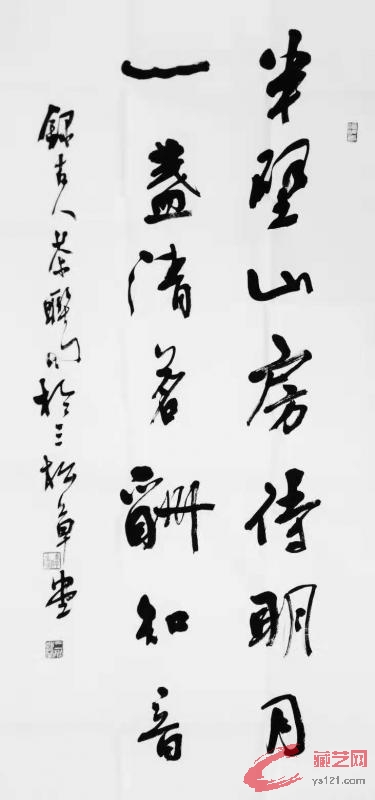 半壁山房待明月
一盏清茗酬知音
録古人茶聯句於三松草堂
藏艺网
ys121.com